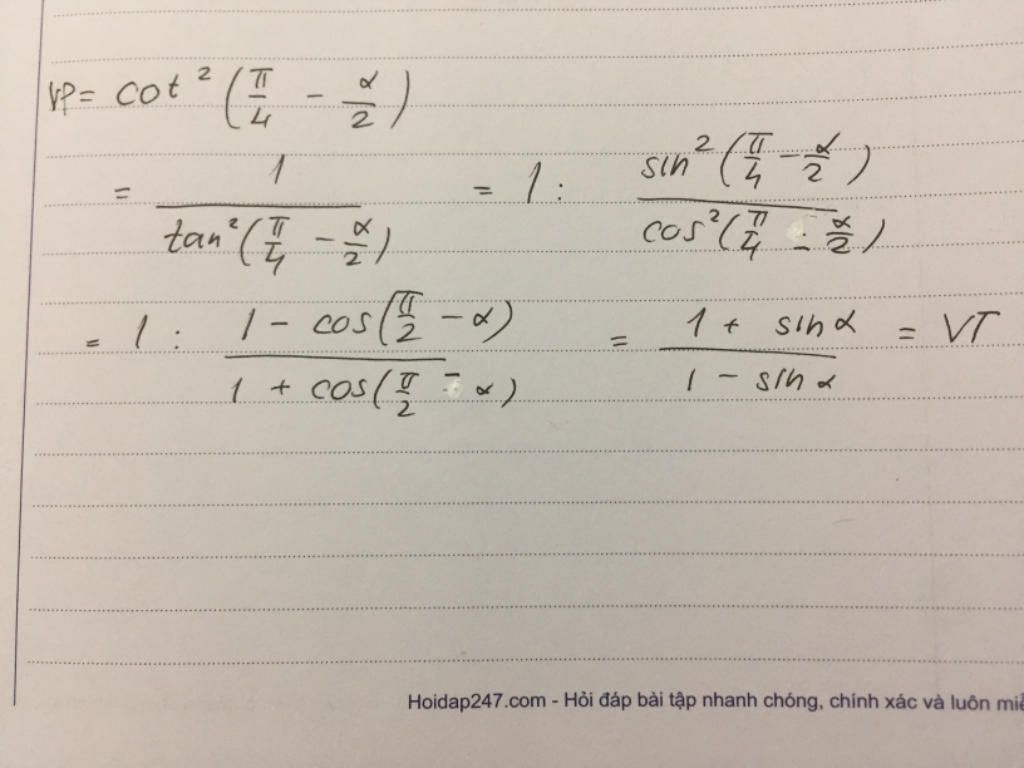 VP = cot² (π/4 - α/2)
= 1 / tan² (π/4 - α/2) = 1 : sin² (π/4 - α/2) / cos² (π/4 - α/2)
= 1 : 1 - cos (π/2 - α) / 1 + cos (π/2 - α) = 1 + sin α / 1 - sin α = VT
Hoidap247.com - Hỏi đáp bài tập nhanh chóng, chính xác và luôn